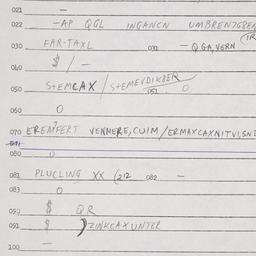 021 —
022 -AP QGL INGANCN UMBREN7GBEN
030 FAR-TAXL 030 - QGA, VERN
060 $ / -
050 STEMCAX / STEMEVDIKBER
051 0
060 0
070 EREMFERT VENMERE, CUIM / ERMAXCAXNITVI, SND
071
080 0
081 PLUCLING XX (212 082 —
083 0
090 $ QR
091 $ ) ZINKCAXUNTER
100 —